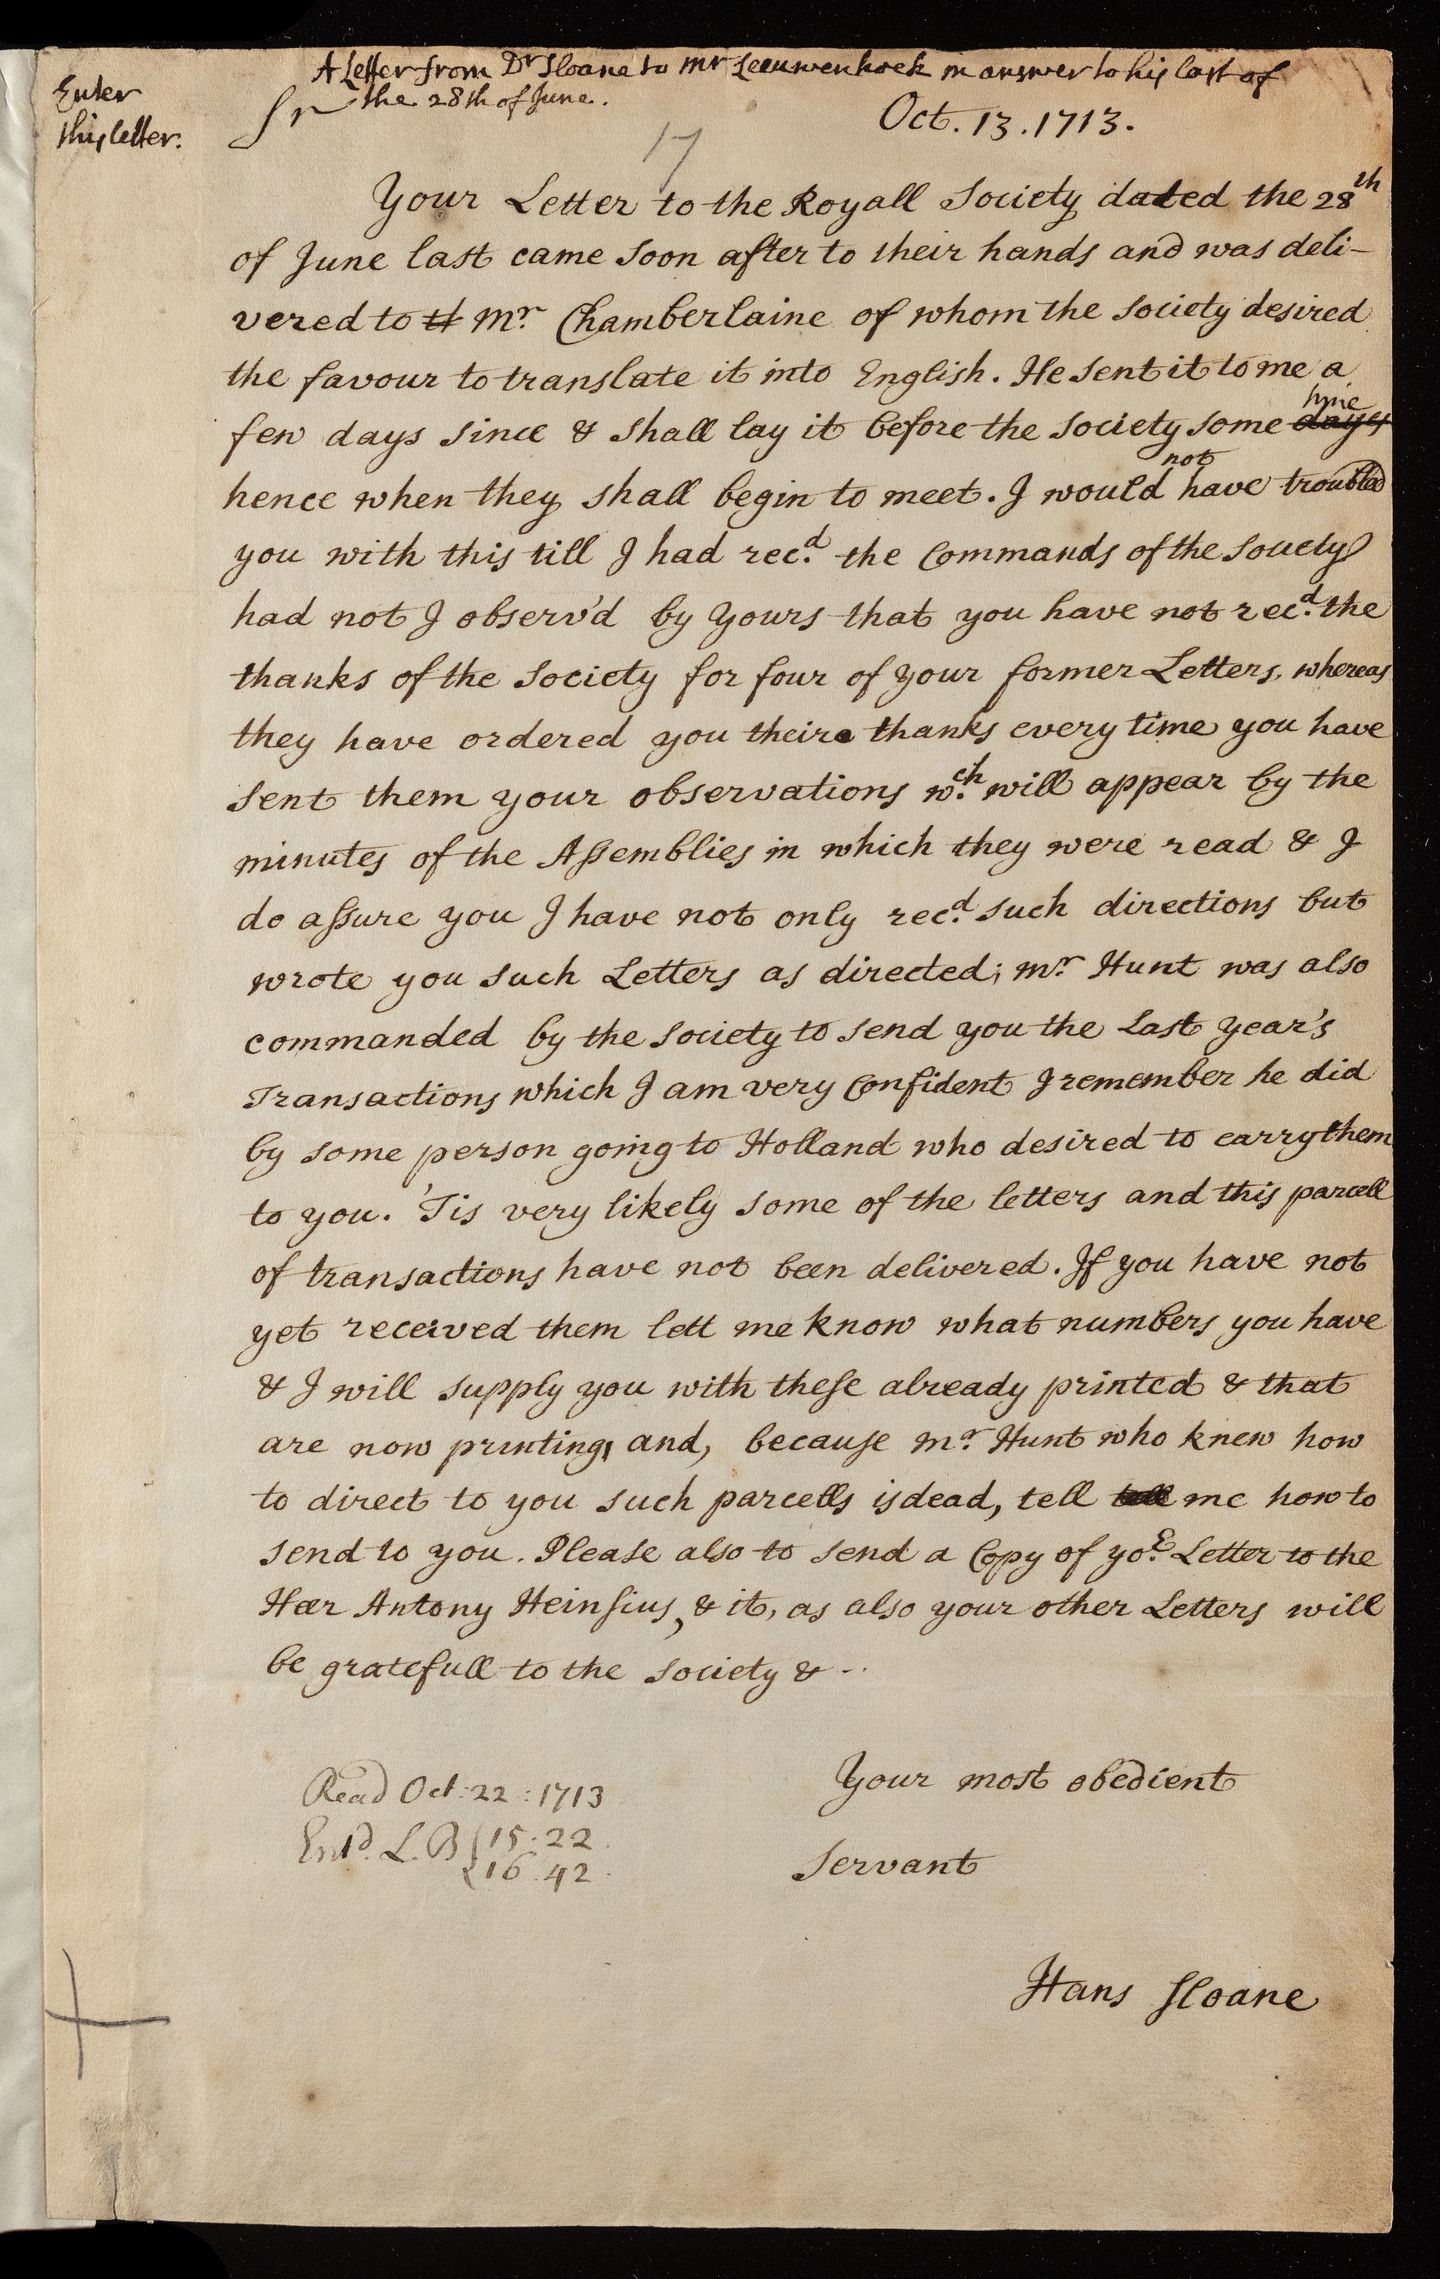 A Letter from Dr Sloane to Mr Leeuwenhoek in answer to his last of
the 28th of June.
Enter
this letter.
Sr
Oct. 13. 1713.
17
Your Letter to the Royall Society dated the 28th
of June last came soon after to their hands and was deli-
vered to th Mr. Chamberlaine of whom the Society desired
the favour to translate it into English. He sent it to me a
few days since & shall lay it before the Society some days time
hence when they shall begin to meet. I would not have troubled
you with this till I had rec.d the Commands of the Society
had not I observ'd by Yours that you have not rec.d the
thanks of the Society for four of your former Letters, whereas
they have ordered you their thanks every time you have
sent them your observations w.ch will appear by the
minutes of the Assemblies in which they were read & I
do assure you I have not only rec.d such directions but
wrote you such Letters as directed; Mr. Hunt was also
commanded by the Society to send you the Last year's
Transactions which I am very Confident I remember he did
by some person going to Holland who desired to carry them
to you. 'Tis very likely some of the letters and this parcell
of transactions have not been delivered. If you have not
yet received them lett me know what numbers you have
& I will supply you with these already printed & that
are now printing, and, because Mr. Hunt who knew how
to direct to you such parcells is dead, tell tell me how to
send to you. Please also to send a Copy of yo.r Letter to the
Heer Antony Heinsius, & it, as also your other Letters will
be gratefull to the Society & -..
Your most obedient
Servant
Hans Sloane
Read Oct: 22: 1713
Ent'd. L. B { 15. 22.
{ 16. 42.